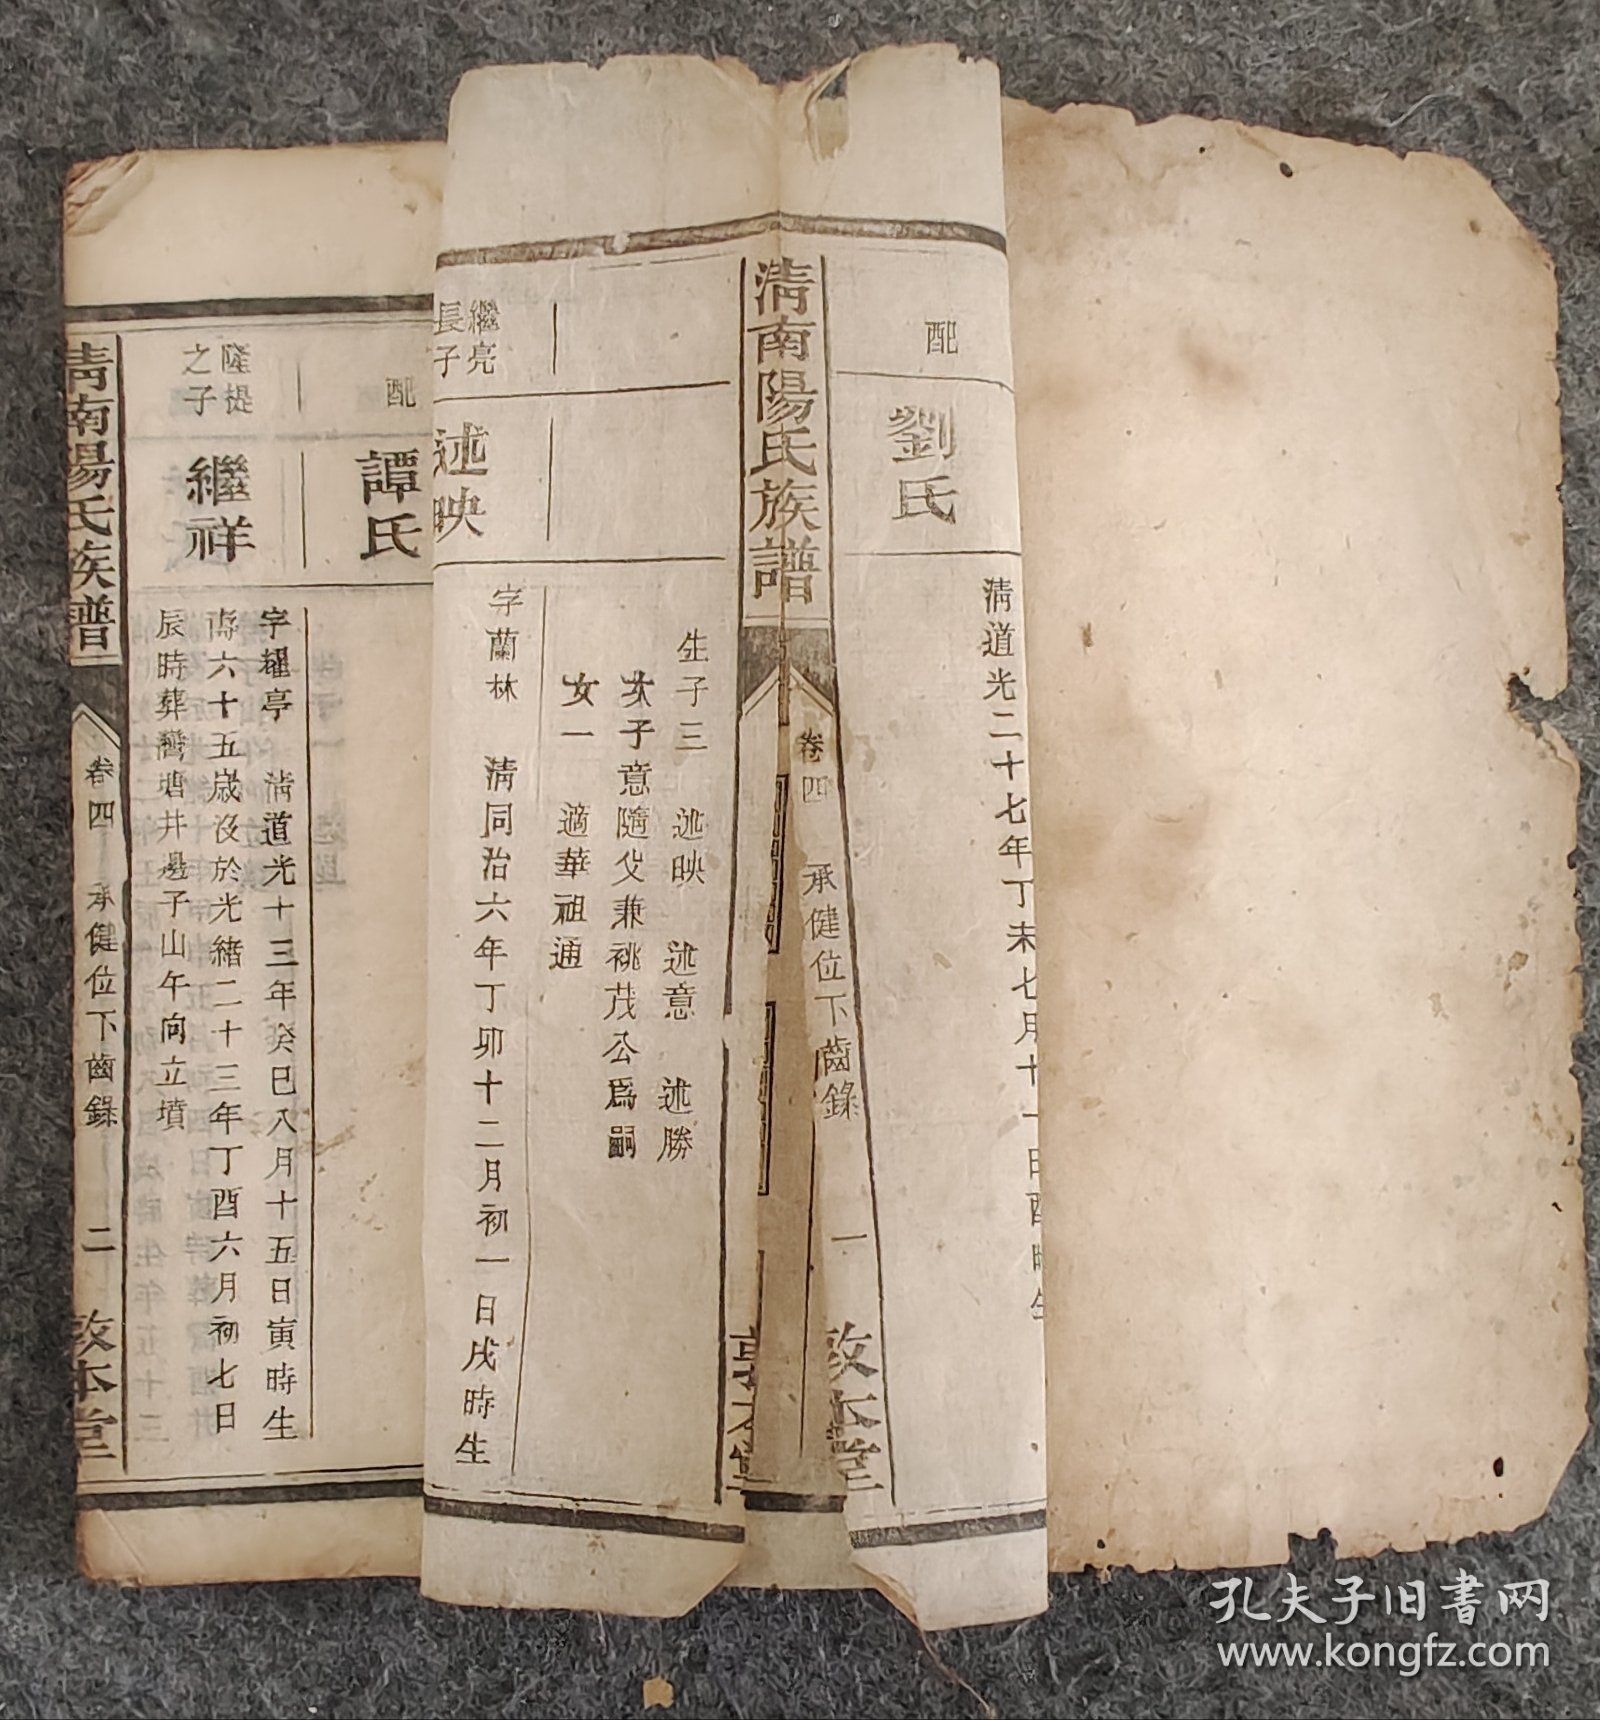 配
劉氏
清道光二十七年丁未七月十一日酉時生
清南陽氏族譜
卷四
承健位下齒錄
一
敦本堂
生子三 述映 述意 述勝
次子意隨父兼祧茂公爲嗣
女一 適華祖通
繼亮
長子
述映
字蘭林 清同治六年丁卯十二月初一日戌時生
配
譚氏
隆提
之子
繼祥
字耀亭 清道光十三年癸巳八月十五日寅時生
壽六十五歲沒於光緒二十三年丁酉六月初七日
辰時葬灣塘井邊子山午向立墳
清南陽氏族譜
卷四
承健位下齒錄
二
敦本堂
孔夫子旧书网
www.kongfz.com